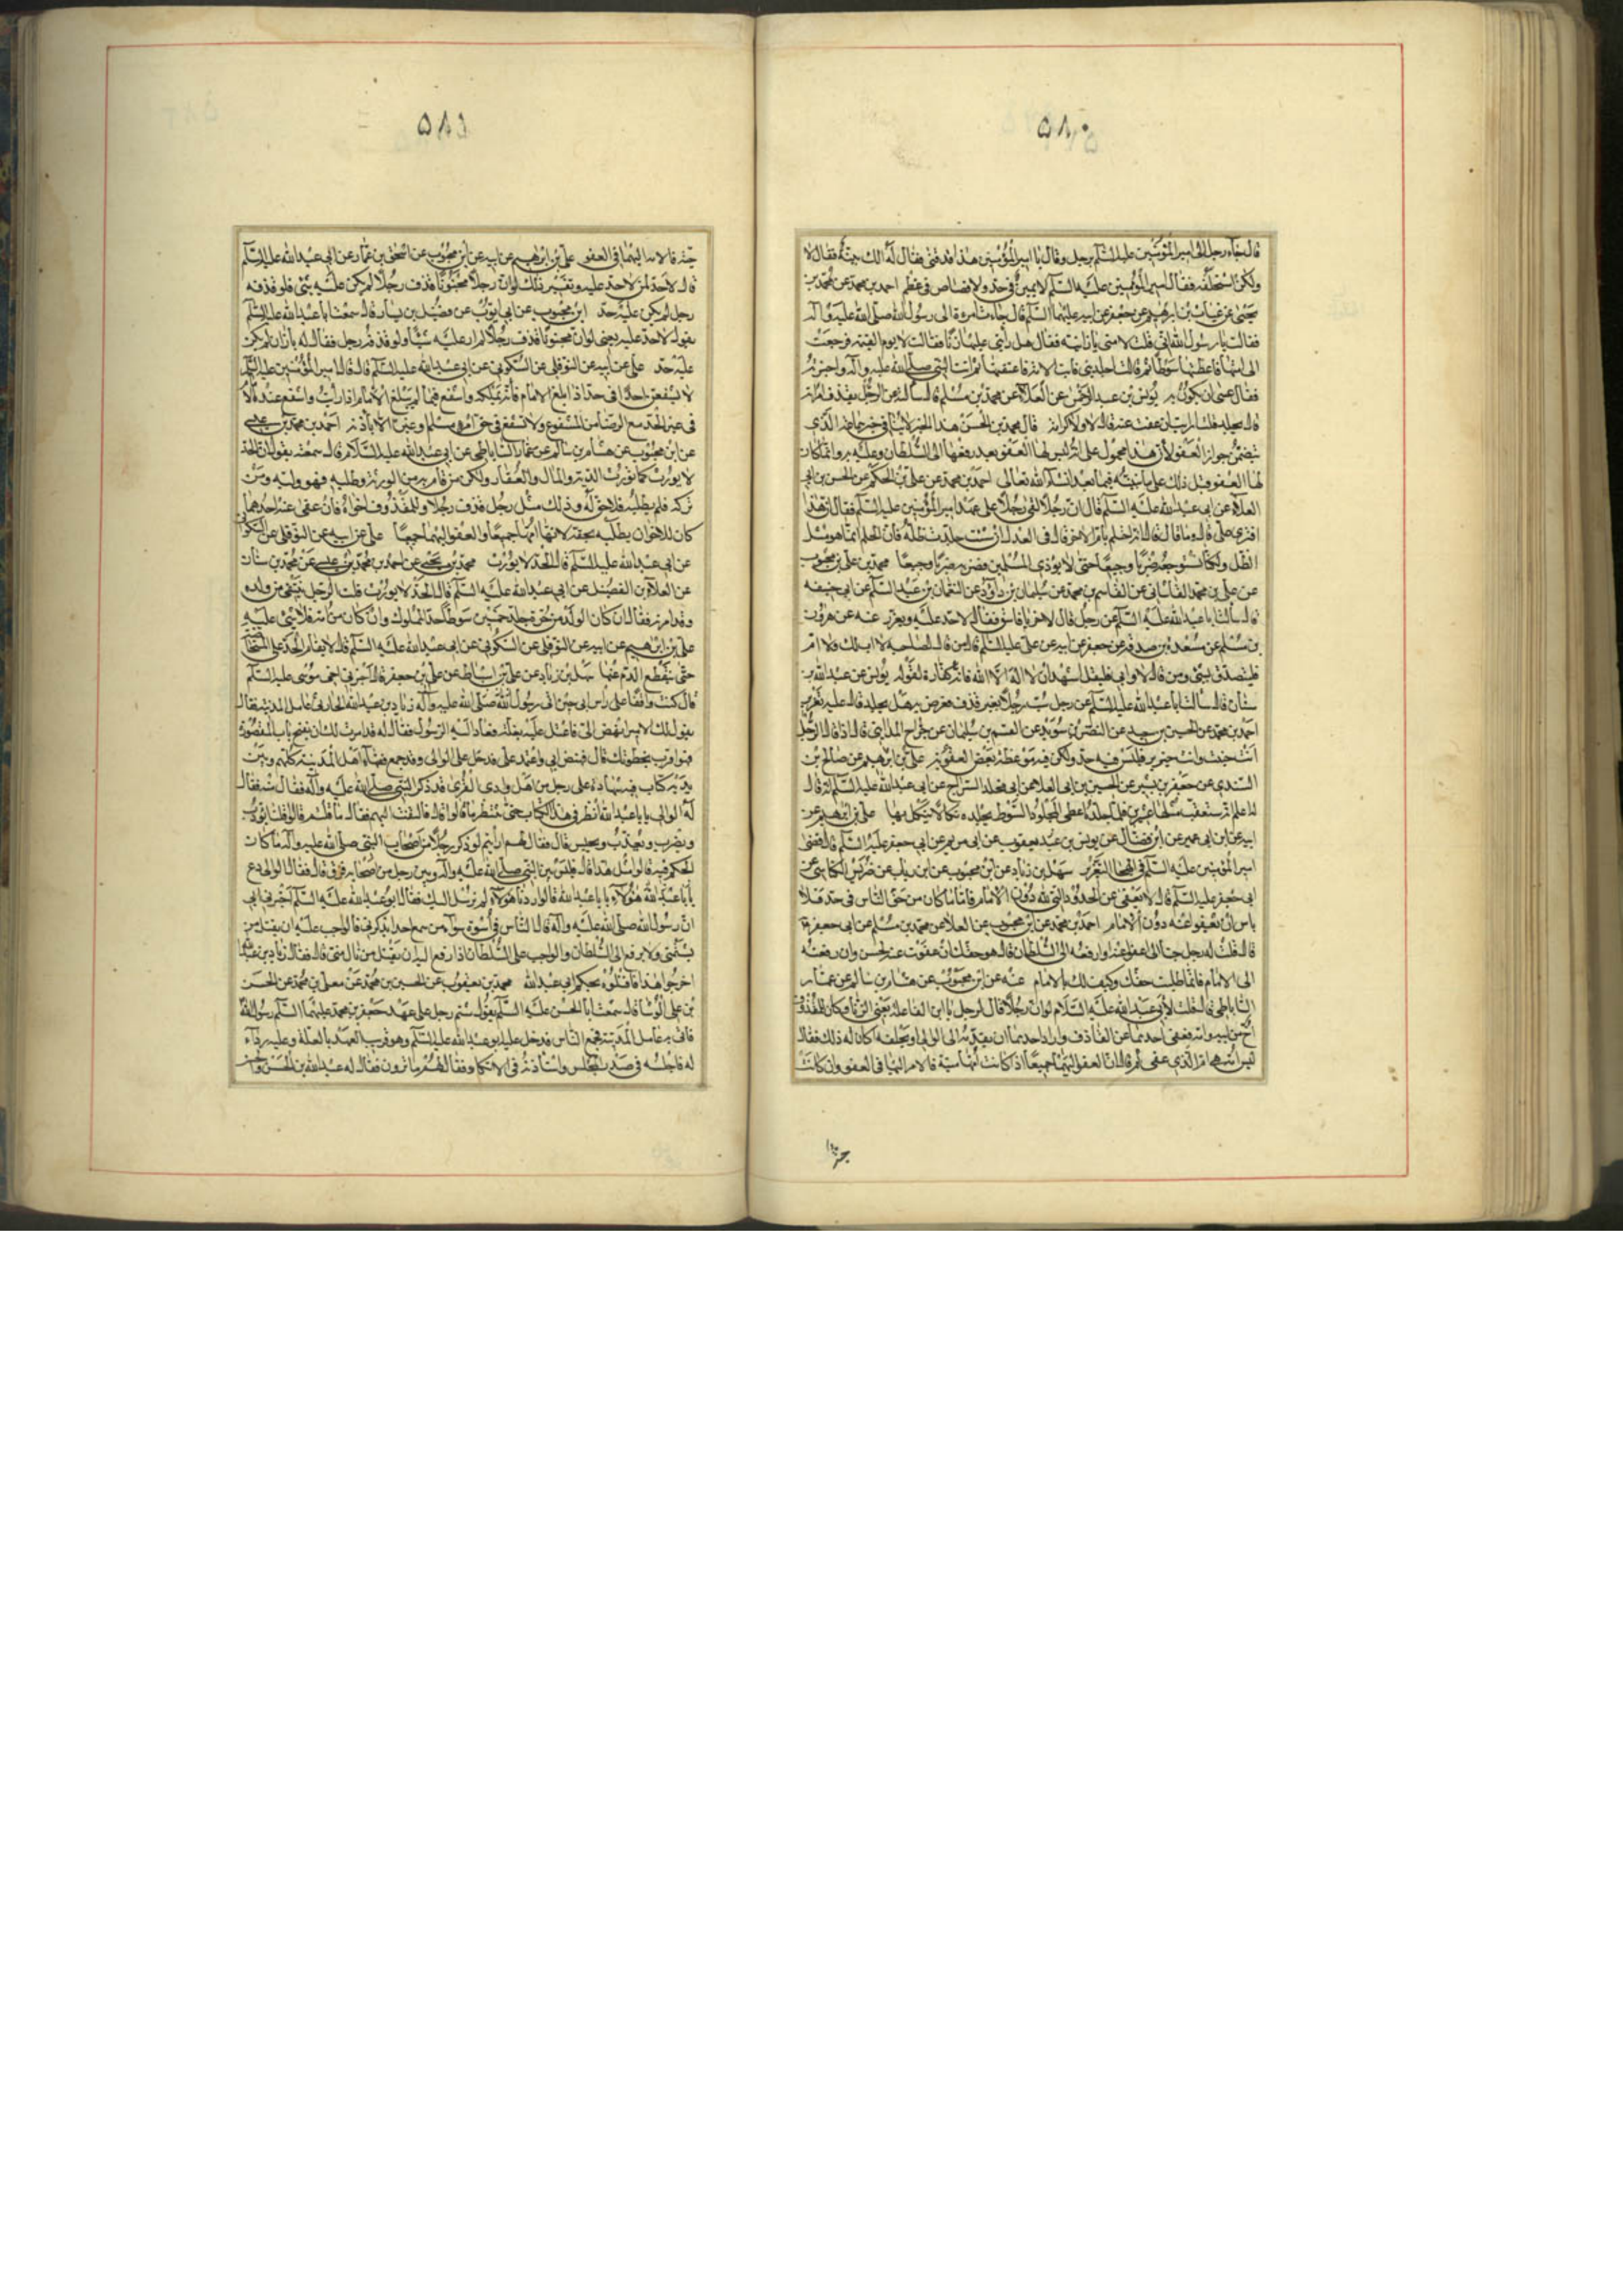 ٥٨٠
قال جاء رجل الى امير المؤمنين عليه السلم برجل وقال يا امير المؤمنين هذا قد قذفنى فقال له الك بينة فقال لا
ولكن استحلفه فقال امير المؤمنين عليه السلم لا يمين فى حد ولا قصاص فى عظم احمد بن محمد عن محمد بن
يحيى عن غياث بن ابرهيم عن جعفر عن ابيه عليهما السلم قال جاءت امرأة الى رسول الله صلى الله عليه واله
فقالت يا رسول الله انى قلت لامتى يا زانية فقال هل رأيتى عليها زنا فقالت لا
الى امتها فاعطتها سوطا ثم قالت اجلدينى فابت الامة فاعتقتها ثم اتت النبى صلى الله عليه واله واخبرته
فقال عسى ان يكون به يونس بن عبد الرحمن عن العلاء عن محمد بن مسلم قال سالته عن الرجل يقذف امراته
قال يجلد قلت ارايت ان عفت عنه قال لا ولا كرامة قال محمد بن الحسن هذا الخبر لا ينافى خبر سماعة الذى
يتضمن جواز العفو لان هذا محمول على انه ليس لها العفو بعد رفعها الى السلطان وعليه به وانما كان
لها العفو قبل ذلك على ما نبينه فيما بعد انشاء الله تعالى احمد بن محمد عن على بن الحكم عن الحسن بن ابى
العلاء عن ابى عبد الله عليه السلم قال ان رجلا لقى رجلا على عهد امير المؤمنين عليه السلم فقال ان هذا
افترى على قال وما قال لك قال انه احتلم بام الاخر قال فى العدل ان شئت جلدت ظله فان الحلم انما هو مثل
الظل ولكنا سنوجعه ضربا وجيعا حتى لا يوذى المسلمين فضربه ضربا وجيعا محمد بن على بن محبوب
عن على بن محمد القاسانى عن القاسم بن محمد عن سليمان بن داود عن النعمان بن عبد السلم عن ابى حنيفه
قال سالت ابا عبد الله عليه السلم عن رجل قال لاخر يا فاسق فقال لا حد عليه ويعزر عنه عن هرون
بن مسلم عن مسعدة بن صدقة عن جعفر عن ابيه عن على عليه السلم قال من قال لصاحبه لا اب لك ولا ام
فليتصدق بشئ ومن قال لا وابى فليقل اشهد ان لا اله الا الله فانه كفارة لقوله يونس عن عبد الله بن
سنان قال سالت ابا عبد الله عليه السلم عن رجل سب رجلا بغير قذف فعرض به هل يجلد قال عليه تعزير
احمد بن محمد عن الحسين بن سعيد عن النضر بن سويد عن القسم بن سليمان عن جراح المداينى قال اذا قال الرجل
انت خبث وانت خنزير فليس فيه حد ولكن فيه موعظة وبعض العقوبة على بن ابرهيم عن صالح بن
السندى عن جعفر بن بشير عن الحسين بن ابى العلا عن ابى مخلد السراج عن ابى عبد الله عليه السلم انه قال
على بن ابرهيم عن
ابيه عن ابن ابى عمير عن ابن فضال عن يونس بن يعقوب عن ابى مريم عن ابى جعفر عليه السلم قال قضى
امير المؤمنين عليه السلم فى الهجاء التعزير سهل بن زياد عن ابن محبوب عن ابن رياب عن ضريس الكناسى عن
ابى جعفر عليه السلم قال لا يعفى عن الحدود التى لله دون الامام فاما ما كان من حق الناس فى حد فلا
باس ان يعفو عنه دون الامام احمد بن محمد عن ابن محبوب عن العلا عن محمد بن مسلم عن ابى جعفر
قال قلت له رجل جنا الى اعفو عنه او ارفعه الى السلطان قال هو حقك ان عفوت عنه فحسن وان رفعته
الى الامام فانما طلبت حقك وكيف لك بالامام عنه عن ابن محبوب عن هشام بن سالم عن عمار
الساباطى قال قلت لابى عبد الله عليه السلام لو ان رجلا قال لرجل يا ابن الفاعلة يعنى الزنا وكان للمقذوف
اخ من ابيه وامه فعفى احدهما عن القاذف واراد احدهما ان يقدمه الى الوالى ويجلده اكان له ذلك فقال
ليس امه هى ام الذى عفى ثم قال ان العفو اليهما جميعا اذا كانت امهما ميتة فالامر اليهما فى العفو وان كانت
٥٨١
حية فالامر اليها فى العفو على بن ابرهيم عن ابيه عن ابن محبوب عن اسحق بن عمار عن ابى عبد الله عليه السلم
قال لا حد لمن لا حد عليه وتفسير ذلك لو ان رجلا مجنونا قذف رجلا لم يكن عليه شئ فلو قذفه
رجل لم يكن عليه حد ابن محبوب عن ابى ايوب عن فضيل بن يسار قال سمعت ابا عبد الله عليه السلم
يقول لا حد لمن لا حد عليه يعنى لو ان مجنونا قذف رجلا لم ار عليه شيئا ولو قذفه رجل فقال له يا زان لم يكن
عليه حد على عن ابيه عن النوفلى عن السكونى عن ابى عبد الله عليه السلم قال قال امير المؤمنين عليه السلم
لا يشفعن احد فى حد اذا بلغ الامام فانه يملكه واشفع فيما لم يبلغ الامام اذا رايت واشفع عند الامام
فى غير الحد مع الرضا من المشفوع ولا تشفع فى حق امرء مسلم وغيره الا باذنه احمد بن محمد بن عيسى
عن ابن محبوب عن هشام بن سالم عن عمار الساباطى عن ابى عبد الله عليه السلام قال سمعته يقول ان الحد
لا يورث كما تورث الدية والمال والعقار ولكن من قام به من الورثة وطلبه فهو وليه ومن
تركه فلم يطلبه فلا حق له وذلك مثل رجل قذف رجلا وللمقذوف اخوان فان عفى عنه احدهما
كان للاخر ان يطلبه بحقه لانها امهما جميعا والعفو اليهما جميعا على عن ابيه عن النوفلى عن السكونى
عن ابى عبد الله عليه السلم قال الحد لا يورث محمد بن يحيى عن احمد بن محمد بن عيسى عن محمد بن سنان
عن العلاء بن الفضيل عن ابى عبد الله عليه السلم قال الحد لا يورث قلت الرجل ينتفى من ولده
وقد اقر به فقال ان كان الولد من حرة جلد خمسين سوطا حد المملوك وان كان من امة فلا شئ عليه
على بن ابرهيم عن ابيه عن النوفلى عن السكونى عن ابى عبد الله عليه السلم قال لا يقام الحد على المستحاضة
حتى ينقطع الدم عنها سهل بن زياد عن على بن اسباط عن على بن جعفر قال اخبرنى اخى موسى عليه السلم
قال كنت واقفا على راس ابى حين اتى رسول الله صلى الله عليه واله زياد بن عبيد الله الحارثى عامل المدينة فقال
يقول لك الامير انهض الى فاعتل عليه بعلة فعاد اليه الرسول فقال له قد امرت لك ان يفتح باب المقصورة
فهو اقرب بخطوتك قال فنهض ابى واعتمد على فدخل على الوالى وقد جمع فقهاء اهل المدينة كلهم وبين
يديه كتاب فيه شهادة على رجل من اهل وادى القرى قد ذكر النبى صلى الله عليه واله فقال منه فقال
له الوالى يا ابا عبد الله انظر فى هذا الكتاب حتى ننظر ما قالوا قال فالتفت اليهم فقال ما قلتم قالوا قلنا يؤدب
ويضرب ويعذب ويحبس قال فقال لهم ارايتم لو ذكر رجلا من اصحاب النبى صلى الله عليه واله ما كان
الحكم فيه قالوا مثل هذا قال فليس بين النبى صلى الله عليه واله وبين رجل من اصحابه فرق قال فقال الوالى دع
يا ابا عبد الله هؤلاء يا ابا عبد الله لو اردنا هؤلاء لم نرسل اليك فقال ابو عبد الله عليه السلم اخبرنى ابى
ان رسول الله صلى الله عليه واله قال الناس فى اسوة سواء من سمع احدا يذكرنى فالواجب عليه ان يقتل من
شتمنى ولا يرفع الى السلطان والواجب على السلطان اذا رفع اليه ان يقتل من نال منى قال فقال زياد بن عبيد الله
اخرجوا هذا فاقتلوه بحكم ابى عبد الله محمد بن يعقوب عن الحسين بن محمد عن معلى بن محمد عن الحسن
بن على الوشا قال سمعت ابا الحسن عليه السلم يقول شتم رجل على عهد جعفر بن محمد عليهما السلم رسول الله
فاتى به عامل المدينة فجمع الناس فدخل عليه ابو عبد الله عليه السلم وهو قريب العهد بالعلة وعليه رداء
له فاجلسه فى صدر المجلس واستاذنه فى الاتكاء وقال لهم ما ترون فقال له عبد الله بن الحسن